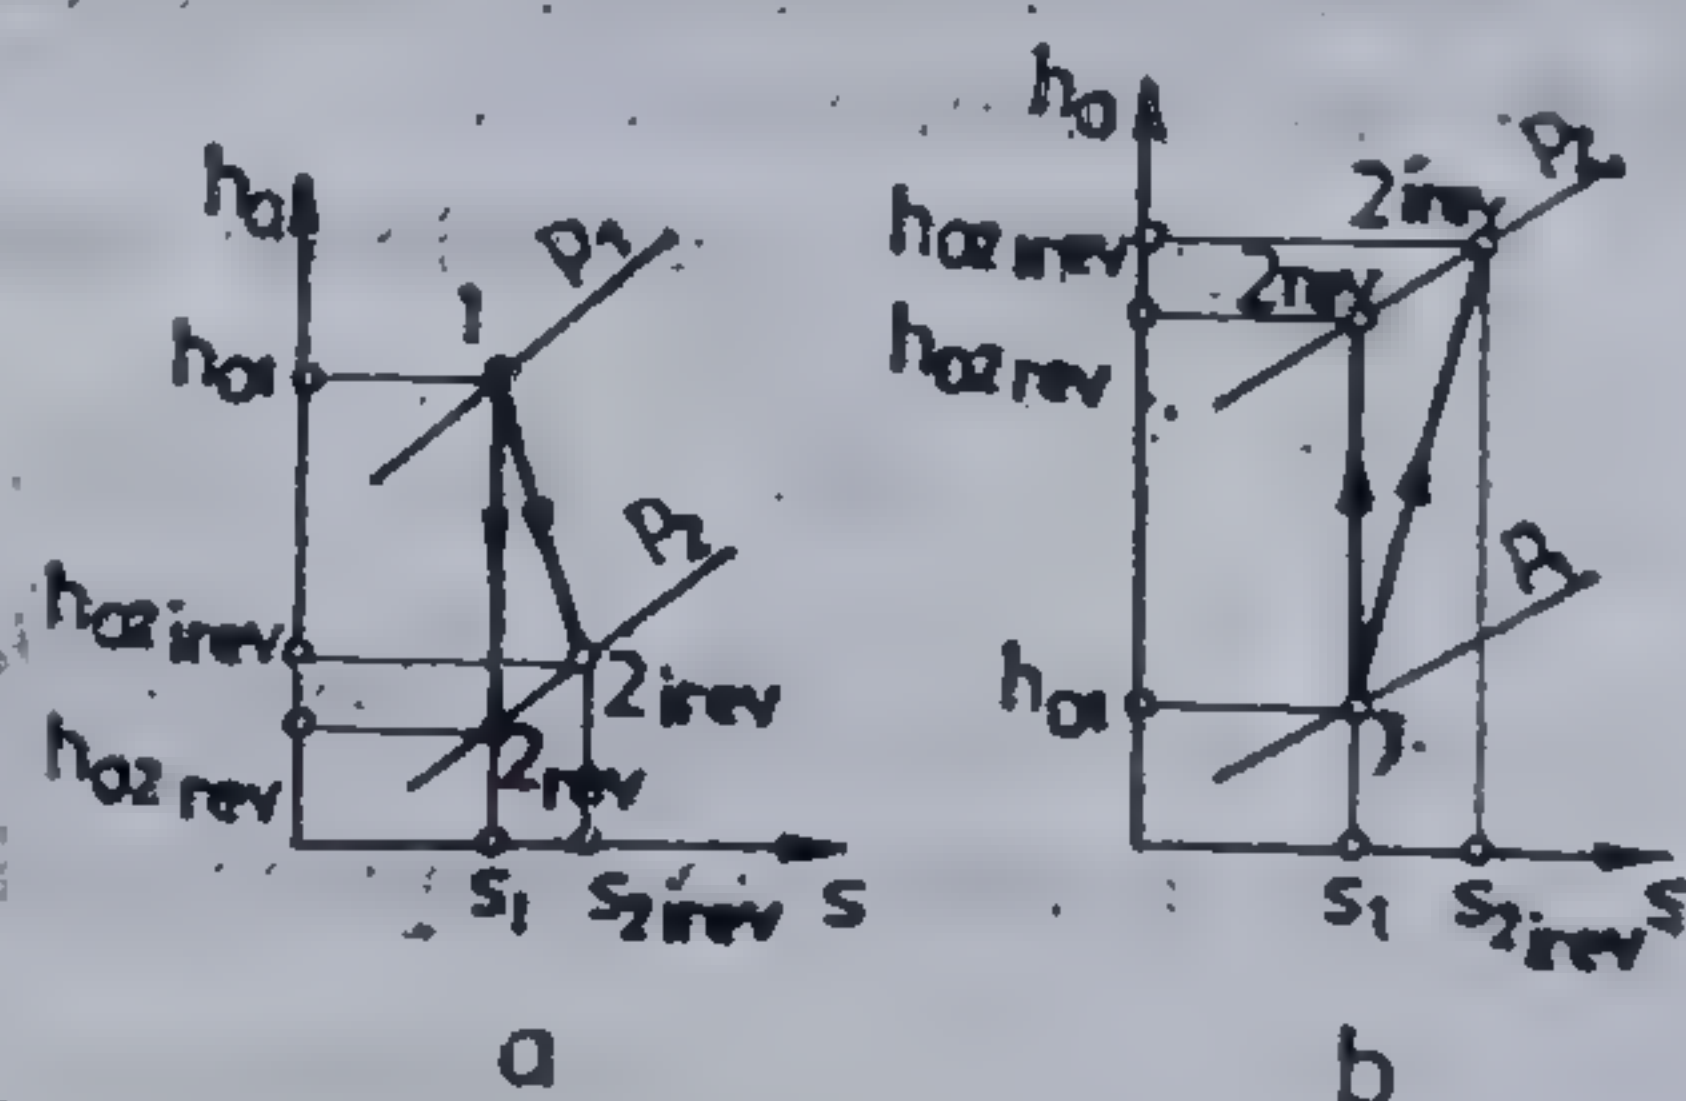 h₀
p₁
1
h₀₁
p₂
h₀₂ irev
2 irev
h₀₂ rev
2 rev
s₁
s₂ irev
s
a
h₀
p₂
2 irev
h₀₂ irev
2 rev
h₀₂ rev
p₁
h₀₁
1
s₁
s₂ irev
s
b